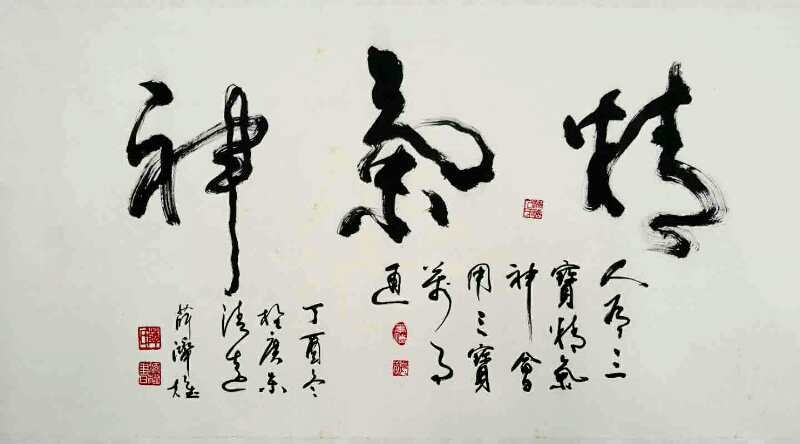 精氣神
人有三
寶精氣
神會
用三寶
萬事
通
丁酉冬
於廣東
清遠
薛濟雄